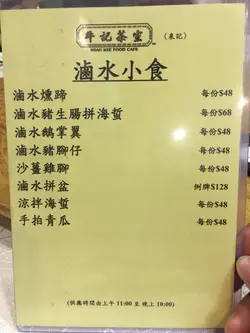 牛記茶室
NGAO KEE FOOD CAFE
(東記)
滷水小食
滷水燻蹄 每份$48
滷水豬生腸拼海蜇 每份$68
滷水鵝掌翼 每份$48
滷水豬腳仔 每份$48
沙薑雞腳 每份$48
滷水拼盆 例牌$128
涼拌海蜇 每份$48
手拍青瓜 每份$48
(供應時間由上午 11:00 至 晚上 10:00)